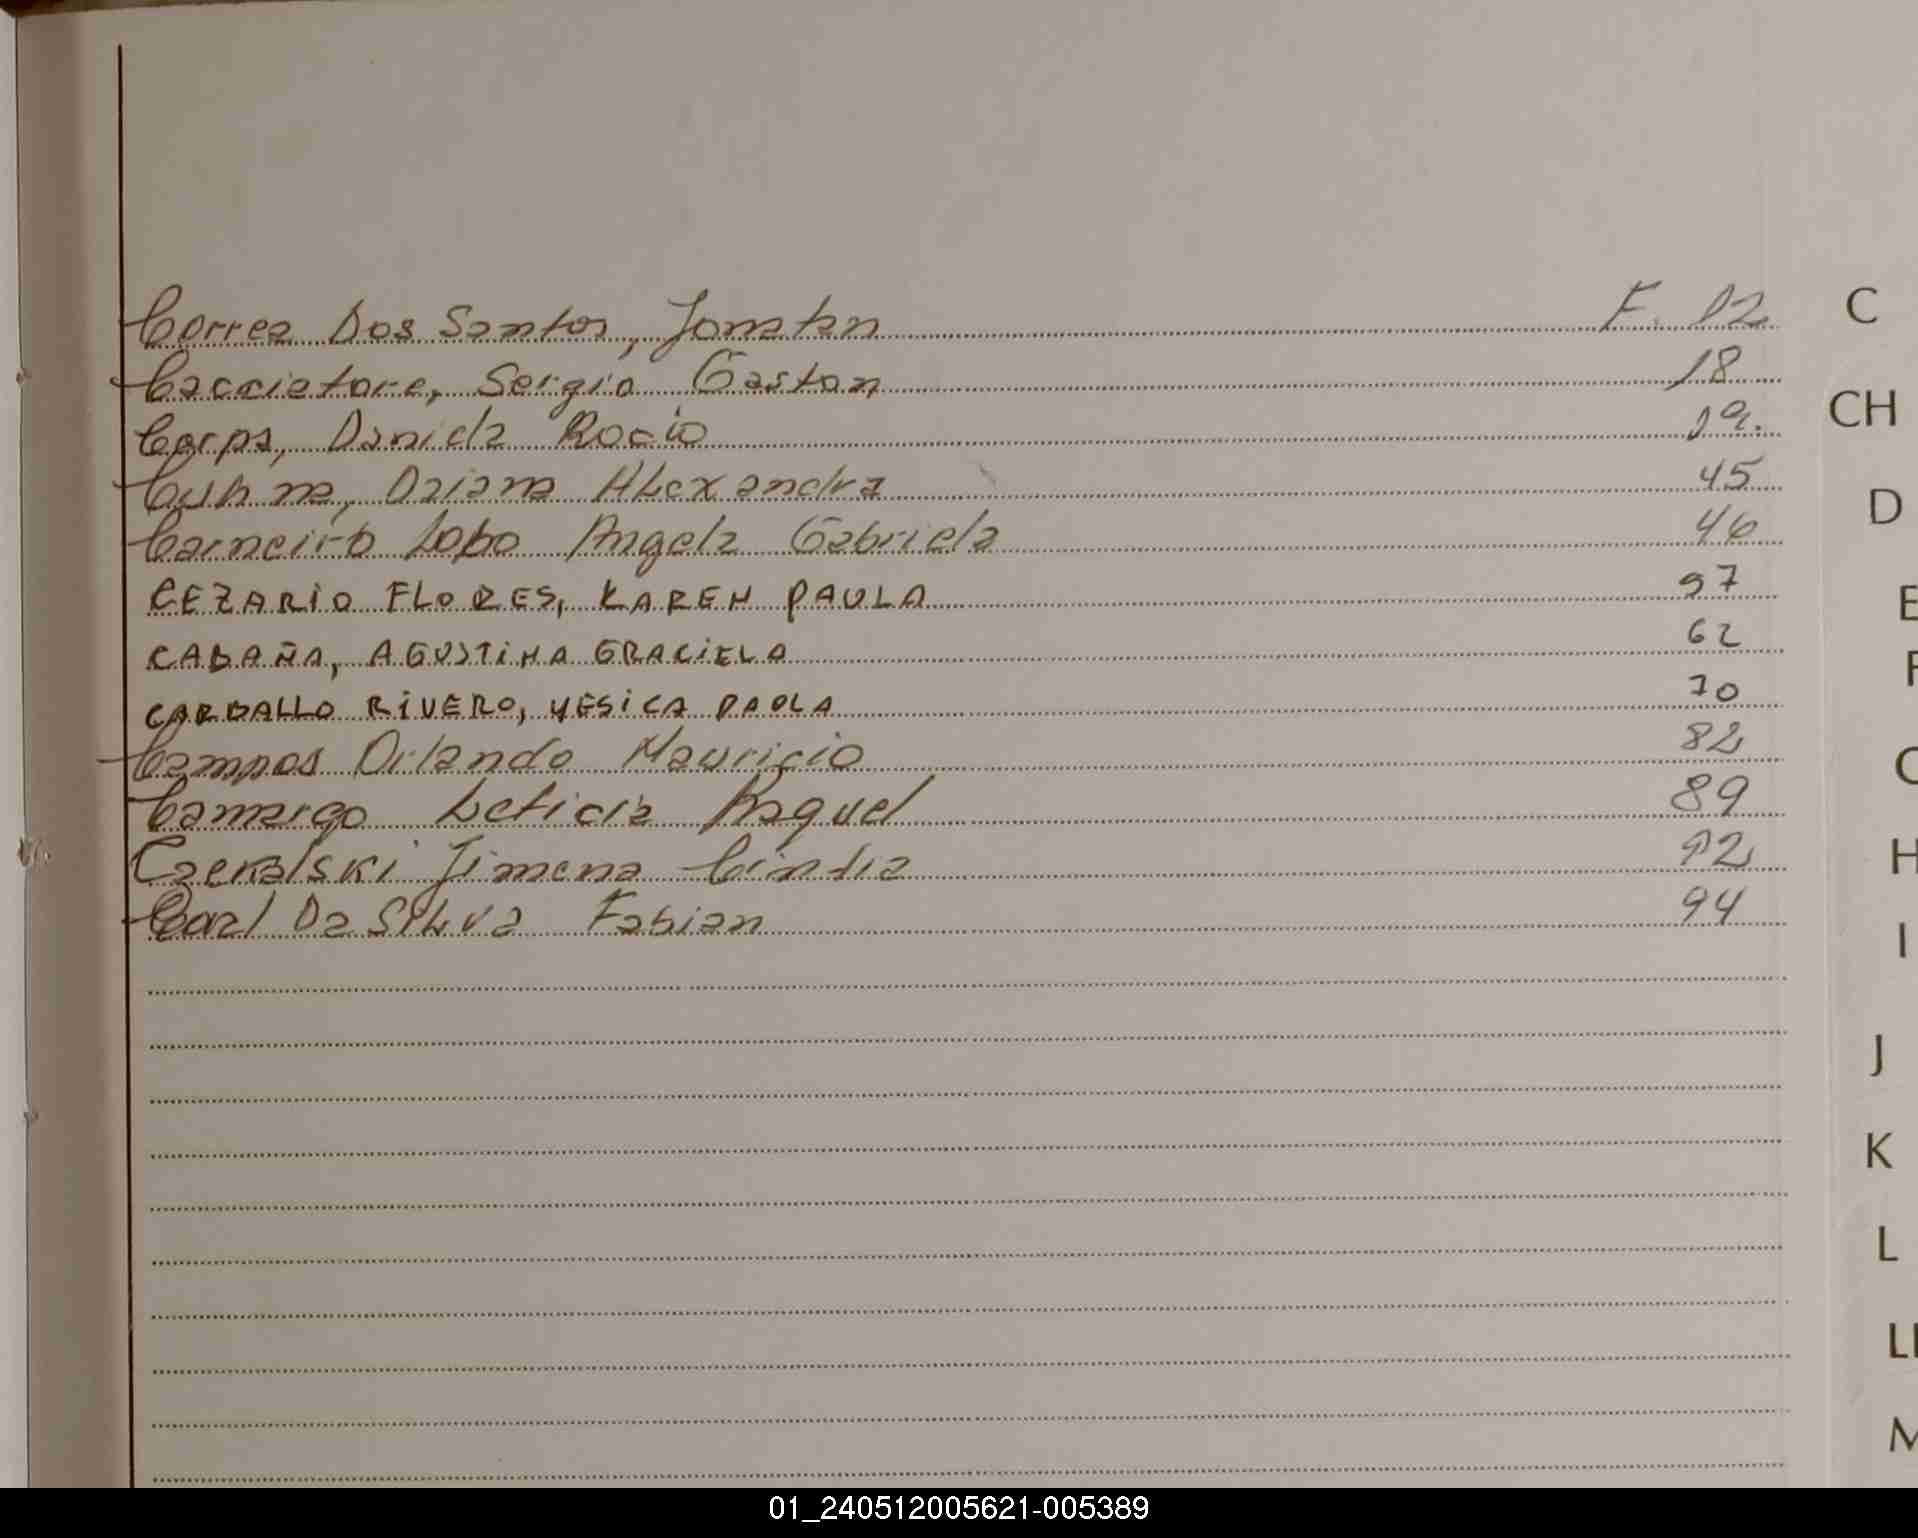 Correa Dos Santos, Jonatan F. 12
Caccietore, Sergio Gaston 18
Carps, Daniela Rocio 19.
Cuhna, Daiana Alexandra 45
Carneiro Lobo Angela Gabriela 46
CEZARIO FLORES, KAREN PAULA 57
CABAÑA, AGUSTINA GRACIELA 62
CARBALLO RIVERO, YESICA PAOLA 70
Campos Orlando Mauricio 82
Camargo Leticia Raquel 89
Jimena Cintia 92
Carl Da Silva Fabian 94
C
CH
D
E
F
G
H
I
J
K
L
LL
M
01_240512005621-005389